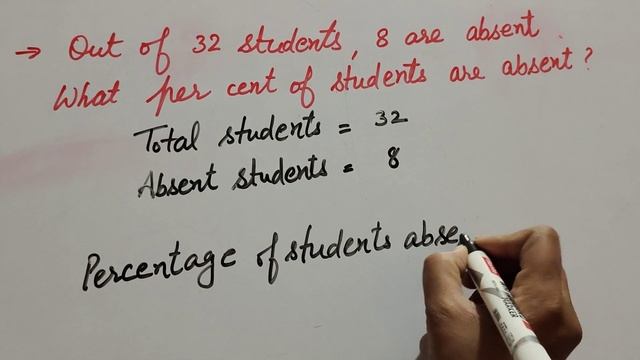 → Out of 32 students, 8 are absent.
What per cent of students are absent?
Total students = 32
Absent students = 8
Percentage of students abse